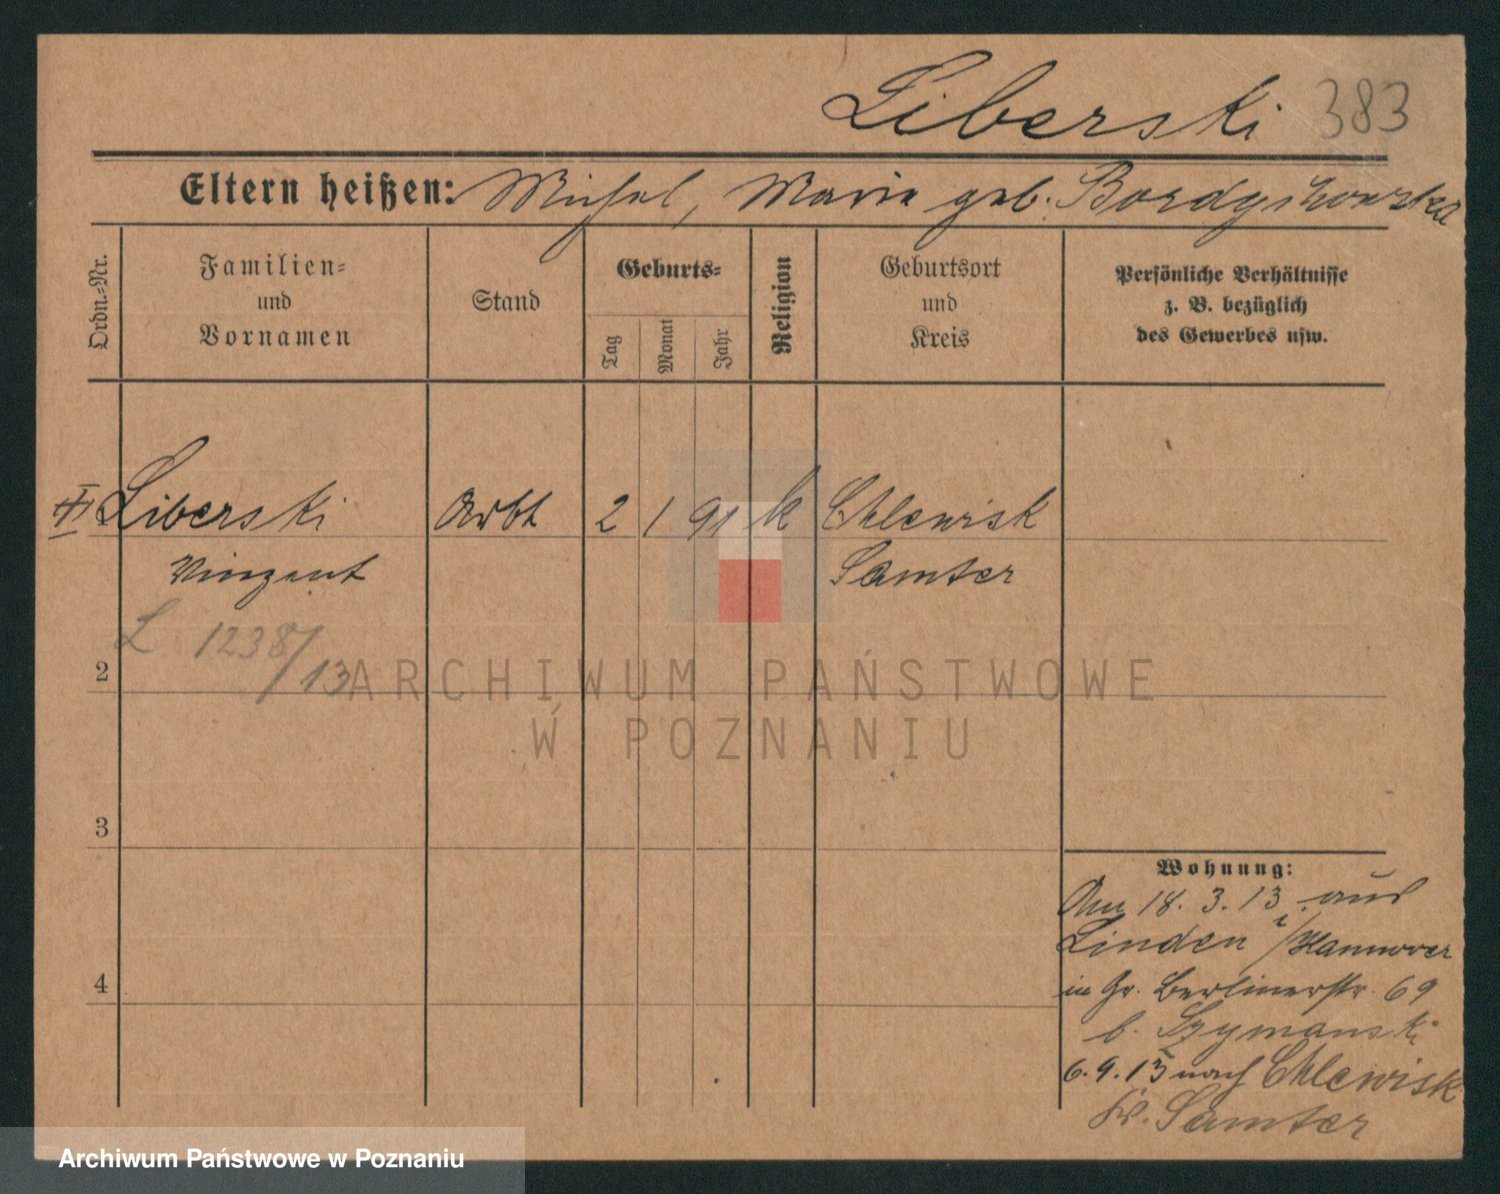 Liberski 383
Eltern heißen: Michel, Maria geb.
Ordn.-Nr.
Familien- und Vornamen
Stand
Geburts-
Tag
Monat
Jahr
Religion
Geburtsort und Kreis
Persönliche Verhältnisse z. B. bezüglich des Gewerbes usw.
1 Liberski Arbt 2 1 91 k Chlewisk
Vinzent Samter
L 1238/13
2
3
4
Wohnung:
Am 18. 3. 13. aus
Linden i/Hannover
in Gr. Berlinerstr. 69
b. Szymanski
6. 9. 13 nach Chlewisk
Kr. Samter
ARCHIWUM PAŃSTWOWE
W POZNANIU
Archiwum Państwowe w Poznaniu